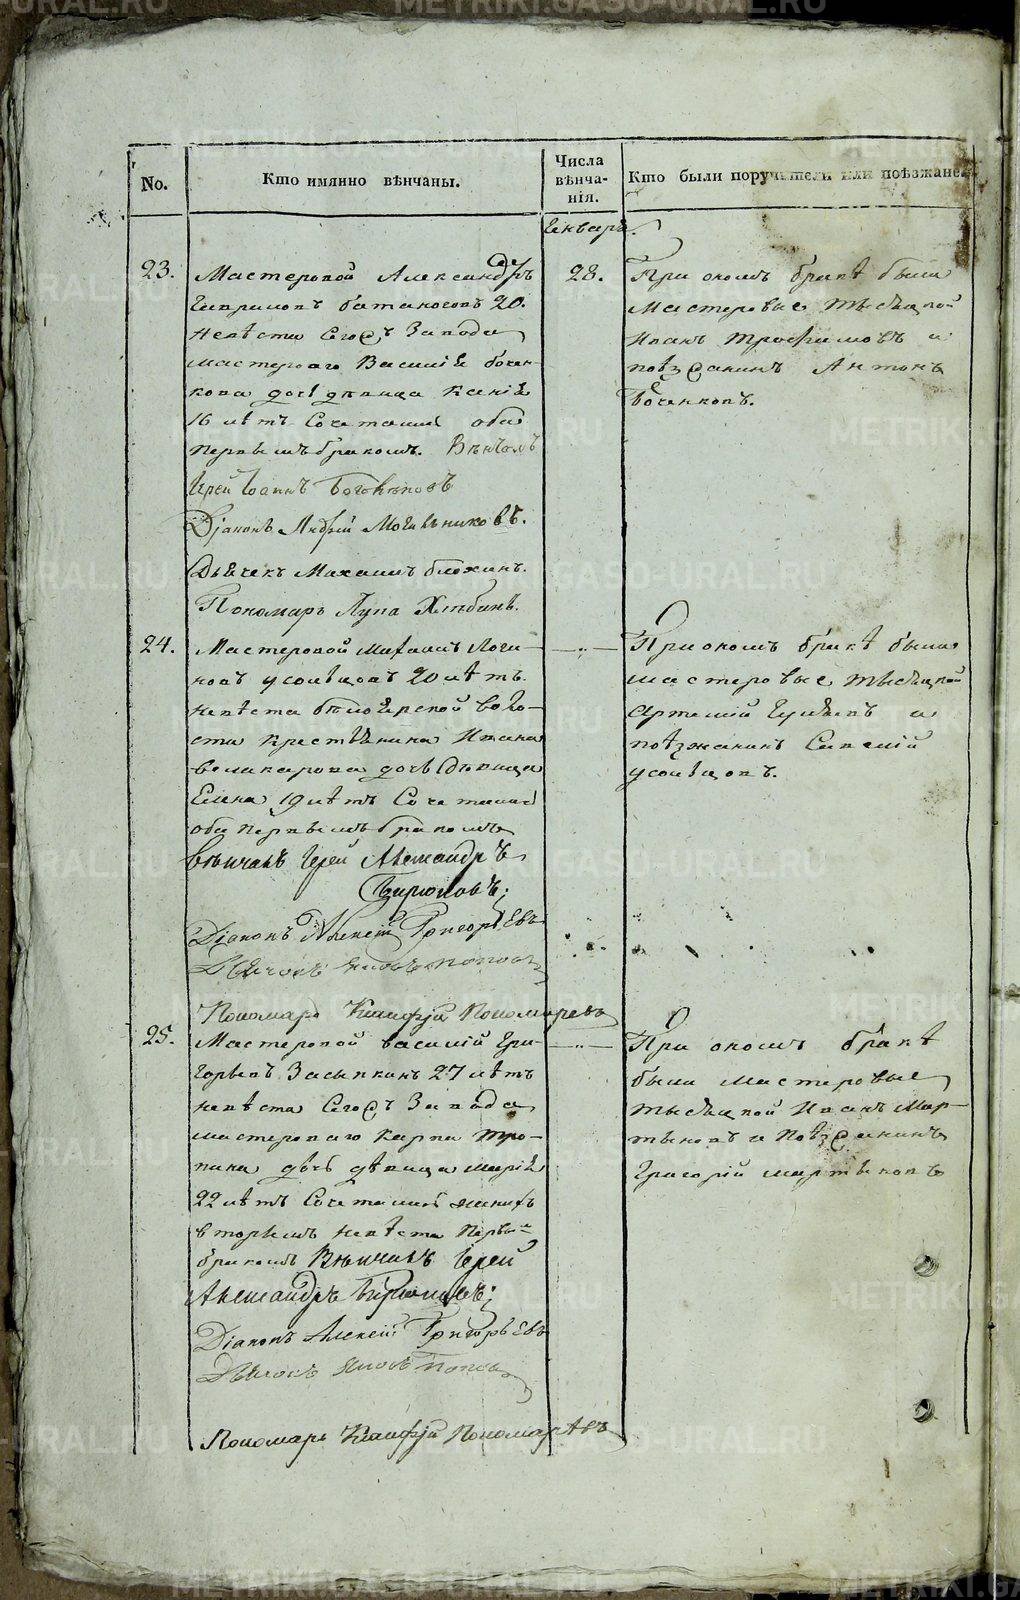 METRIKI.GASO-URAL.RU
No.
Кто имянно вѣнчаны.
Числа
вѣнча-
нія.
Кто были поручители или поѣзжане.
Генваря.
23.
Мастеровой Александръ
20.
невѣста сегожъ завода
мастероваго Василія бочен-
кова дочь дѣвица Ксенія
16 лѣтъ Сочетаны оба
первымъ бракомъ. Вѣнчалъ
Іерей Іоаннъ
Діаконъ Андрей
Дьячекъ Михаилъ блохинъ.
Пономарь Лупа Хлѣбинъ.
28.
При ономъ бракѣ были
мастеровые тысяцкой
Иванъ Трофимовъ и
поѣзжанинъ Антонъ
боченковъ.
24.
Мастеровой Михаилъ Логи-
новъ усольцовъ 20 лѣтъ.
невѣста бѣлоярской воло-
сти крестьянина Ивана
дочь дѣвица
Елена 19 лѣтъ Сочетаны
оба первымъ бракомъ
вѣнчалъ Іерей Александръ
Бирюковъ;
Діаконъ Алексій Григорьевъ
Дьячокъ Яковъ Попов
Пономарь Пономаревъ
— „ —
При ономъ бракѣ были
мастеровые тысяцкой
Артемій и
поѣзжанинъ Савелій
усольцовъ.
25.
Мастеровой василій Гри-
горьевъ Засыпкинъ 27 лѣтъ
невѣста Сегожъ Завода
мастероваго карпа тро-
пина дочь дѣвица марія
22 лѣтъ Сочетаны женихъ
вторымъ невѣста первы
бракомъ Вѣнчалъ Іерей
Александръ Бирюковъ;
Діаконъ Алексій Григорьевъ
Дьячокъ Яковъ Попов
Пономарь Пономаревъ
— „ —
При ономъ бракѣ
были мастеровые
тысяцкой Иванъ Мар-
тыновъ и Поѣзжанинъ
Григорій мартыновъ